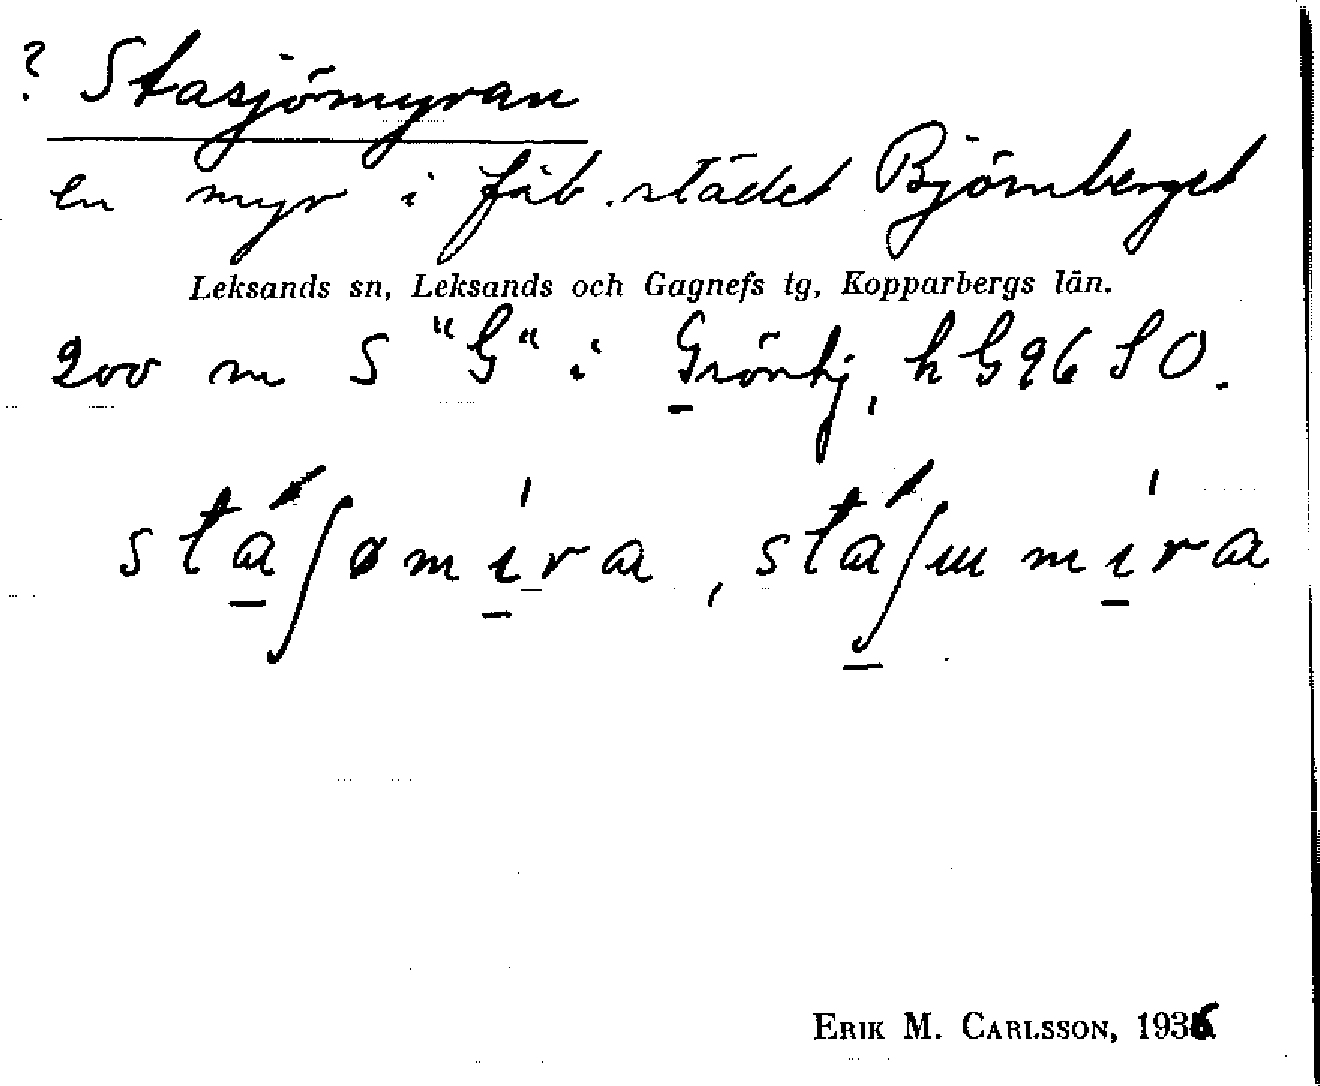 ? Stasjömyran
en myr i fäb.städet Björnberget
Leksands sn, Leksands och Gagnefs tg, Kopparbergs län.
200 m S "G" i Grönhj, h G 96 SO.
stáʃømíra, stáʃɯmíra
ERIK M. CARLSSON, 1936